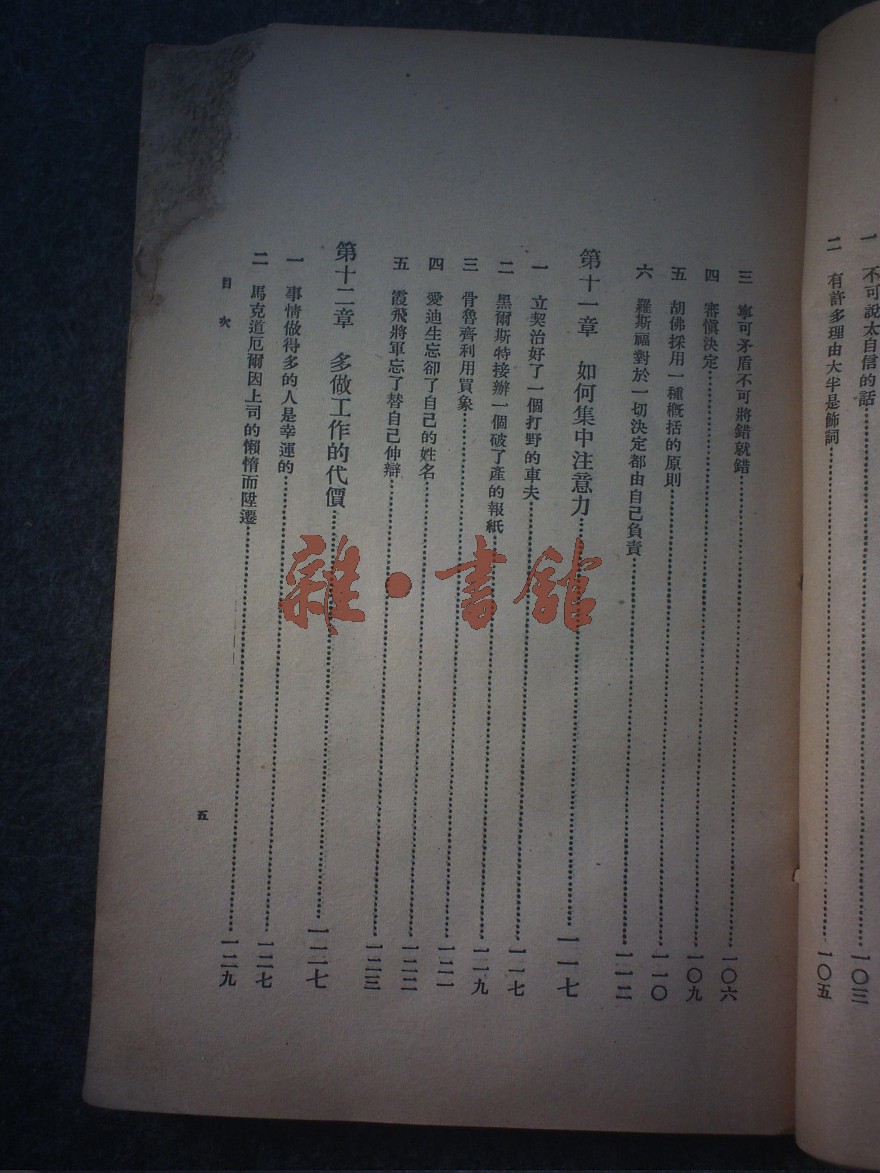 一 不可說太自信的話……一〇三
二 有許多理由大半是飾詞……一〇五
三 寧可矛盾不可將錯就錯……一〇六
四 審慎決定……一〇九
五 胡佛採用一種概括的原則……一一〇
六 羅斯福對於一切決定都由自己負責……一一二
第十一章 如何集中注意力……一一七
一 立契治好了一個打野的車夫……一一七
二 黑爾斯特接辦一個破了產的報紙……一一九
三 骨魯齊利用買象……一二一
四 愛迪生忘卻了自己的姓名……一二二
五 霞飛將軍忘了替自己伸辯……一二三
第十二章 多做工作的代價……一二七
一 事情做得多的人是幸運的……一二七
二 馬克道厄爾因上司的懶惰而陞遷……一二九
目次
五
雜·書館